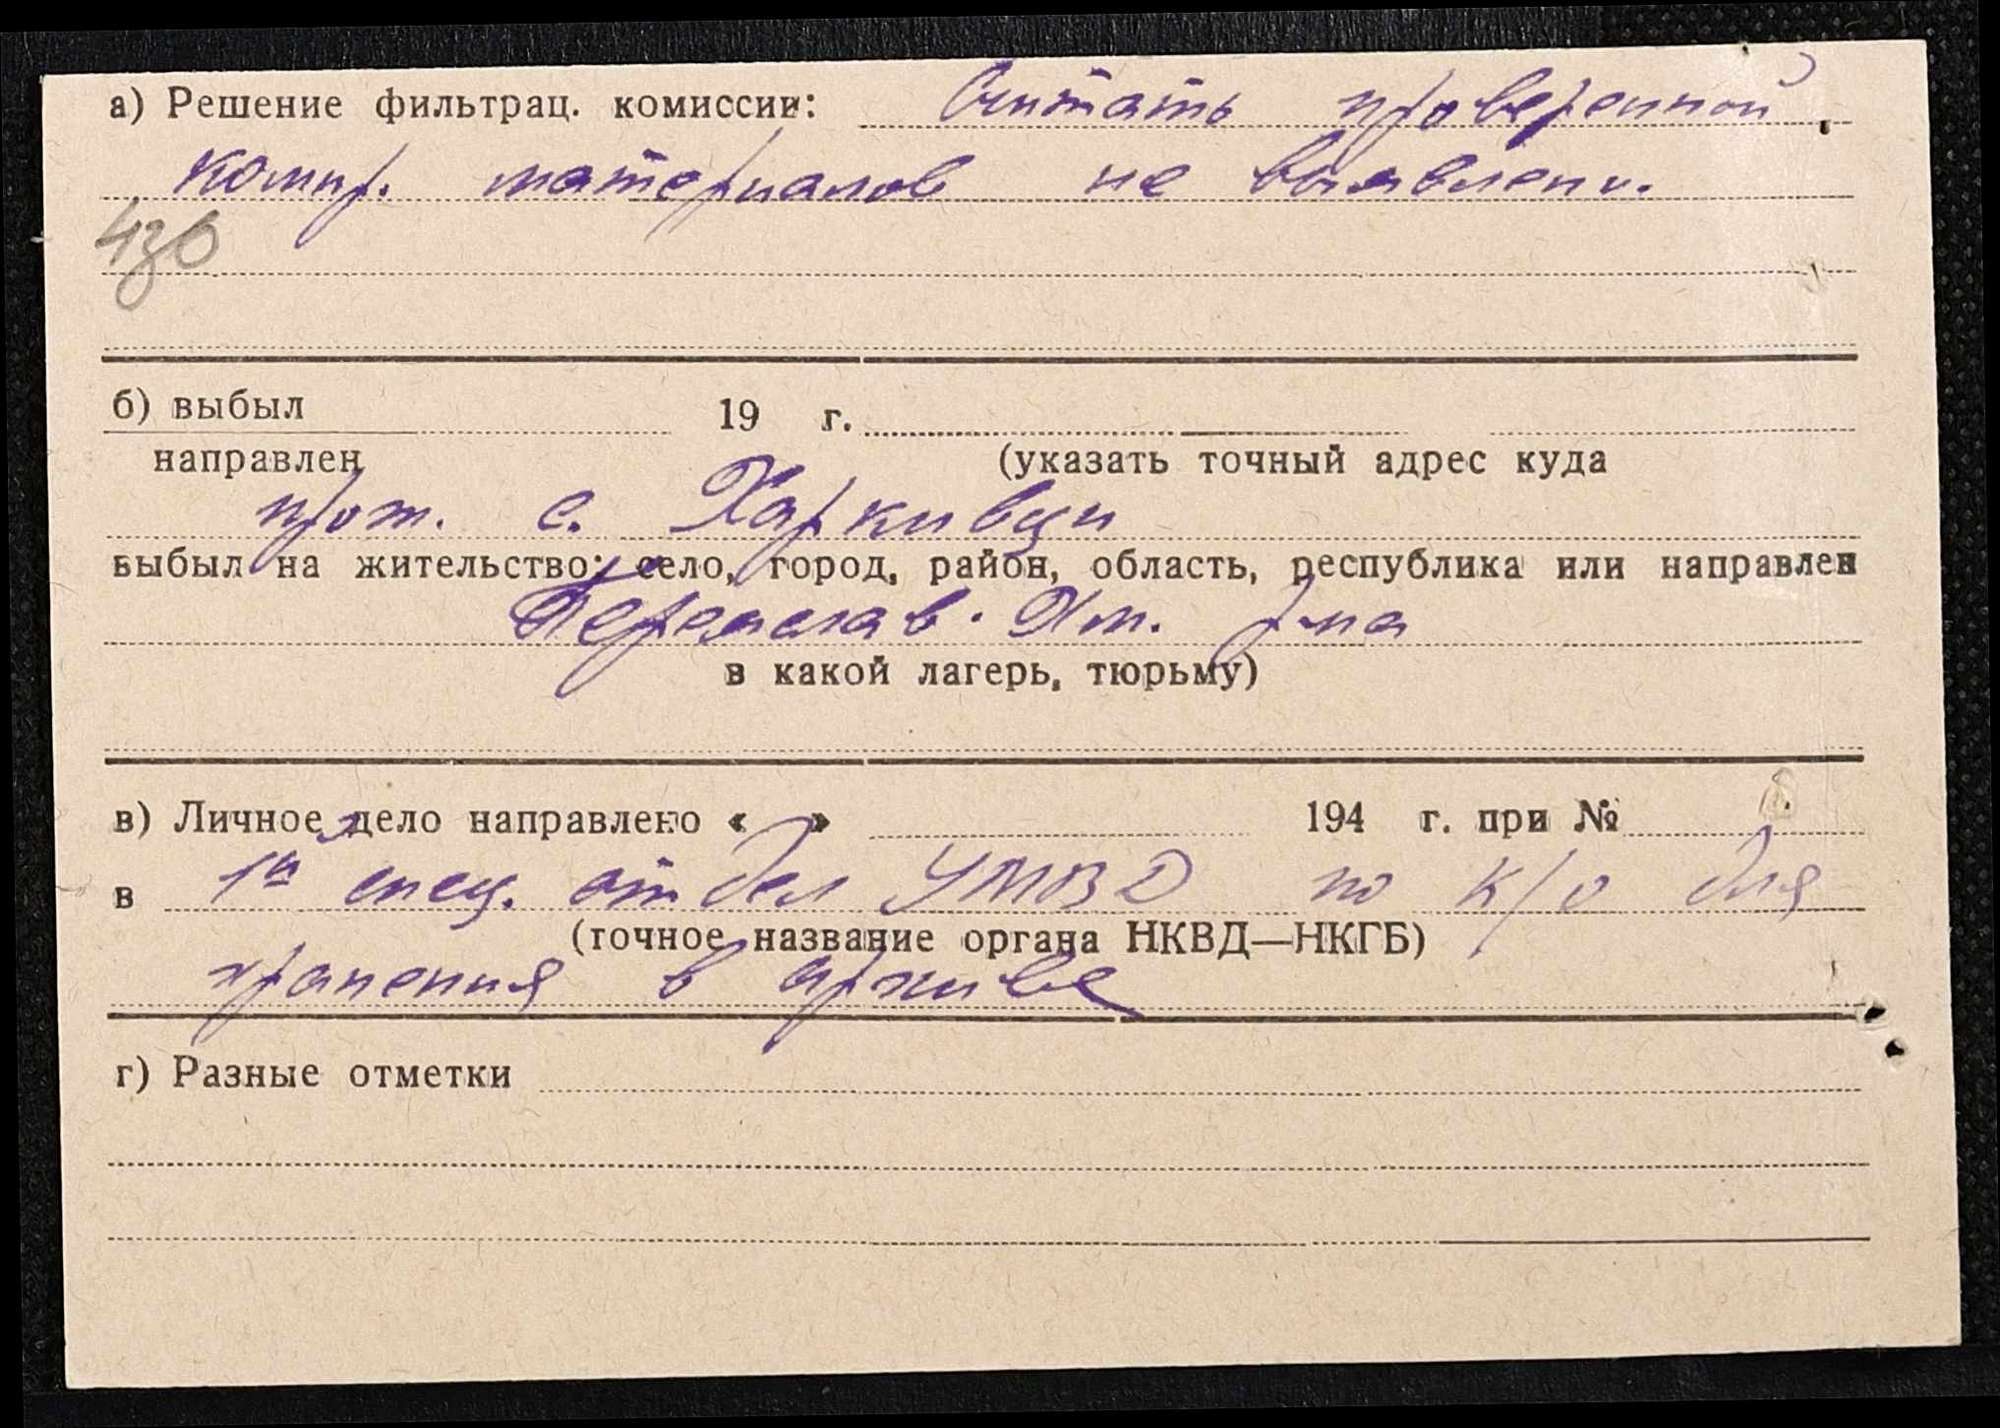 а) Решение фильтрац. комиссии: Считать проверенной,
компр. материалов не выявлено.
430
б) выбыл 19 г.
направлен (указать точный адрес куда
прож. с. Харкивци
выбыл на жительство: село, город, район, область, республика или направлен
Переяслав. Хм. р-на
в какой лагерь, тюрьму)
в) Личное дело направлено « » 194 г. при №
в 1й спец. отдел УМВД по К/О для
(точное название органа НКВД—НКГБ)
хранения в архиве
г) Разные отметки